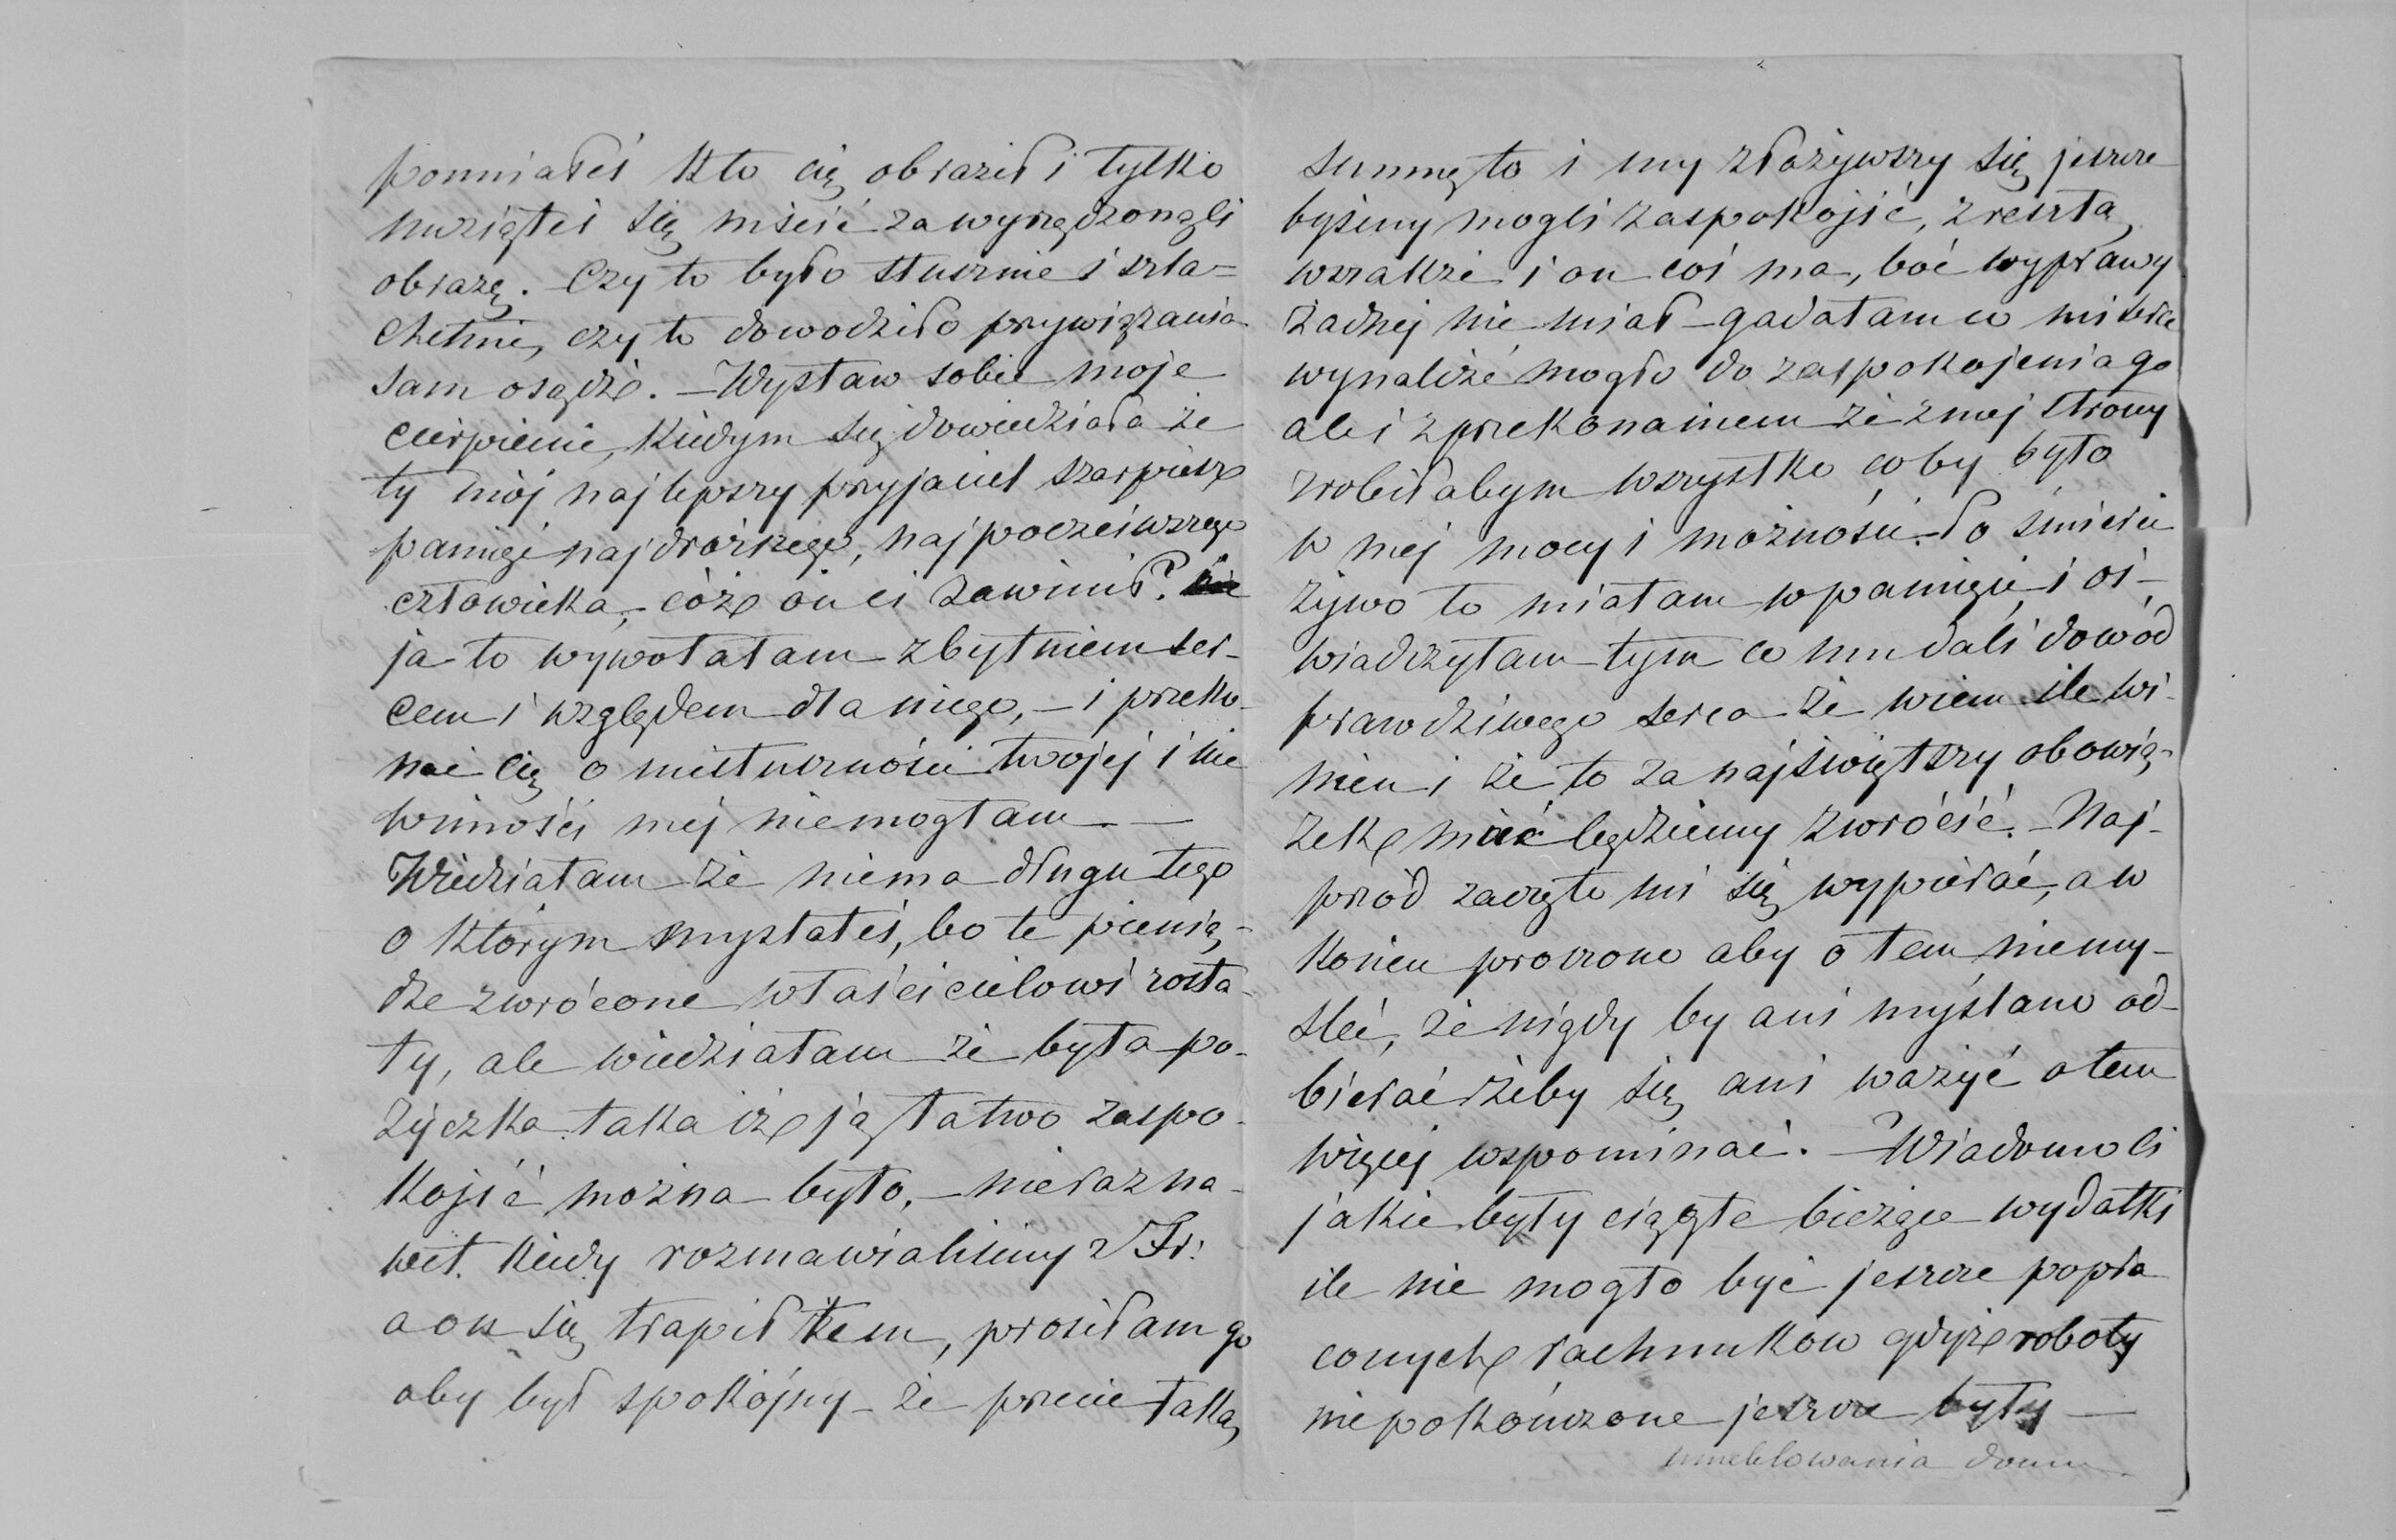 pomniałeś kto cię obraził i tylko
uwziąłeś się mścić za wyrządzoną ci
obrazę. Czy to było słusznie i szla-
chetnie, czy to dowodziło przywiązania
sam osądź. – Wystaw sobie moje
cierpienie, kiedym się dowiedziała że
ty mój najlepszy przyjaciel szarpiesz
pamięć najdroższego, najpoczciwszego
człowieka, – cóż on ci zawinił?
ja to wywołałam zbytniem ser-
cem i względem dla niego, – i przeko-
nać cię o niesłuszności twojej i nie
winności mej niemogłam –
Wiedziałam że niema długu tego
o którym myślałeś, bo te pienią-
dze zwrócone właścicielowi zosta-
ły, ale wiedziałam że była po-
życzka taka iż ją łatwo zaspo-
kojić można było, – nieraz na-
wet kiedy rozmawialiśmy z Fr:
a on się trapił tem, prosiłam go
aby był spokójny – że przecie taką
summę to i my złożywszy się jeszcze
byśmy mogli zaspokojić, zresztą
wszakże i on coś ma, boć wyprawy
żadnej nie miał – gadałam co mi serce
wynaleźć mogło do zaspokojenia go
ale i z przekonaniem że z mej strony
zrobiłabym wszystko coby było
w mej mocy i możności. Po śmierci
żywo to miałam w pamięci i oś-
wiadczyłam tym co mu dali dowód
prawdziwego serca że wiem ile wi-
nien i że to za najświętszy obowią-
zek mieć będziemy zwrócić. – Naj-
przód zaczęto mi się wypierać, a w
końcu proszono aby o tem niemy-
śleć, że nigdy by ani myślano od-
bierać żeby się ani ważyć o tem
więcej wspominać. – Wiadomo ci
jakie były ciągłe bieżące wydatki
ile nie mogło być jeszcze popła
conych rachunków gdyż roboty
niepokończone jeszcze były –
umeblowania domu